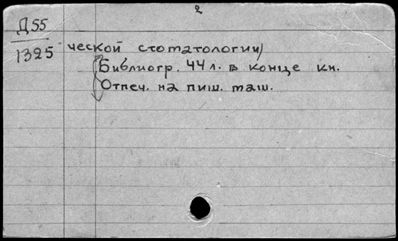 2
Д55
1325
ческой стоматологии)
Библиогр. 44 л. в конце кн.
Отпеч. на пиш. таш.